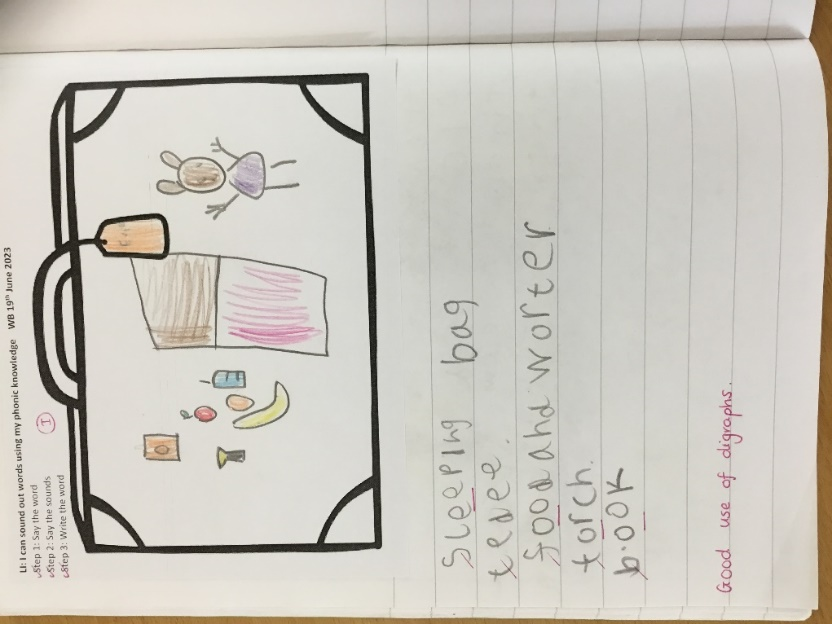 LI: I can sound out words using my phonic knowledge WB 19th June 2023
Step 1: Say the word
Step 2: Say the sounds
Step 3: Write the word
I
Sleeping bag
tedee.
food and worter
torch.
book
Good use of digraphs.